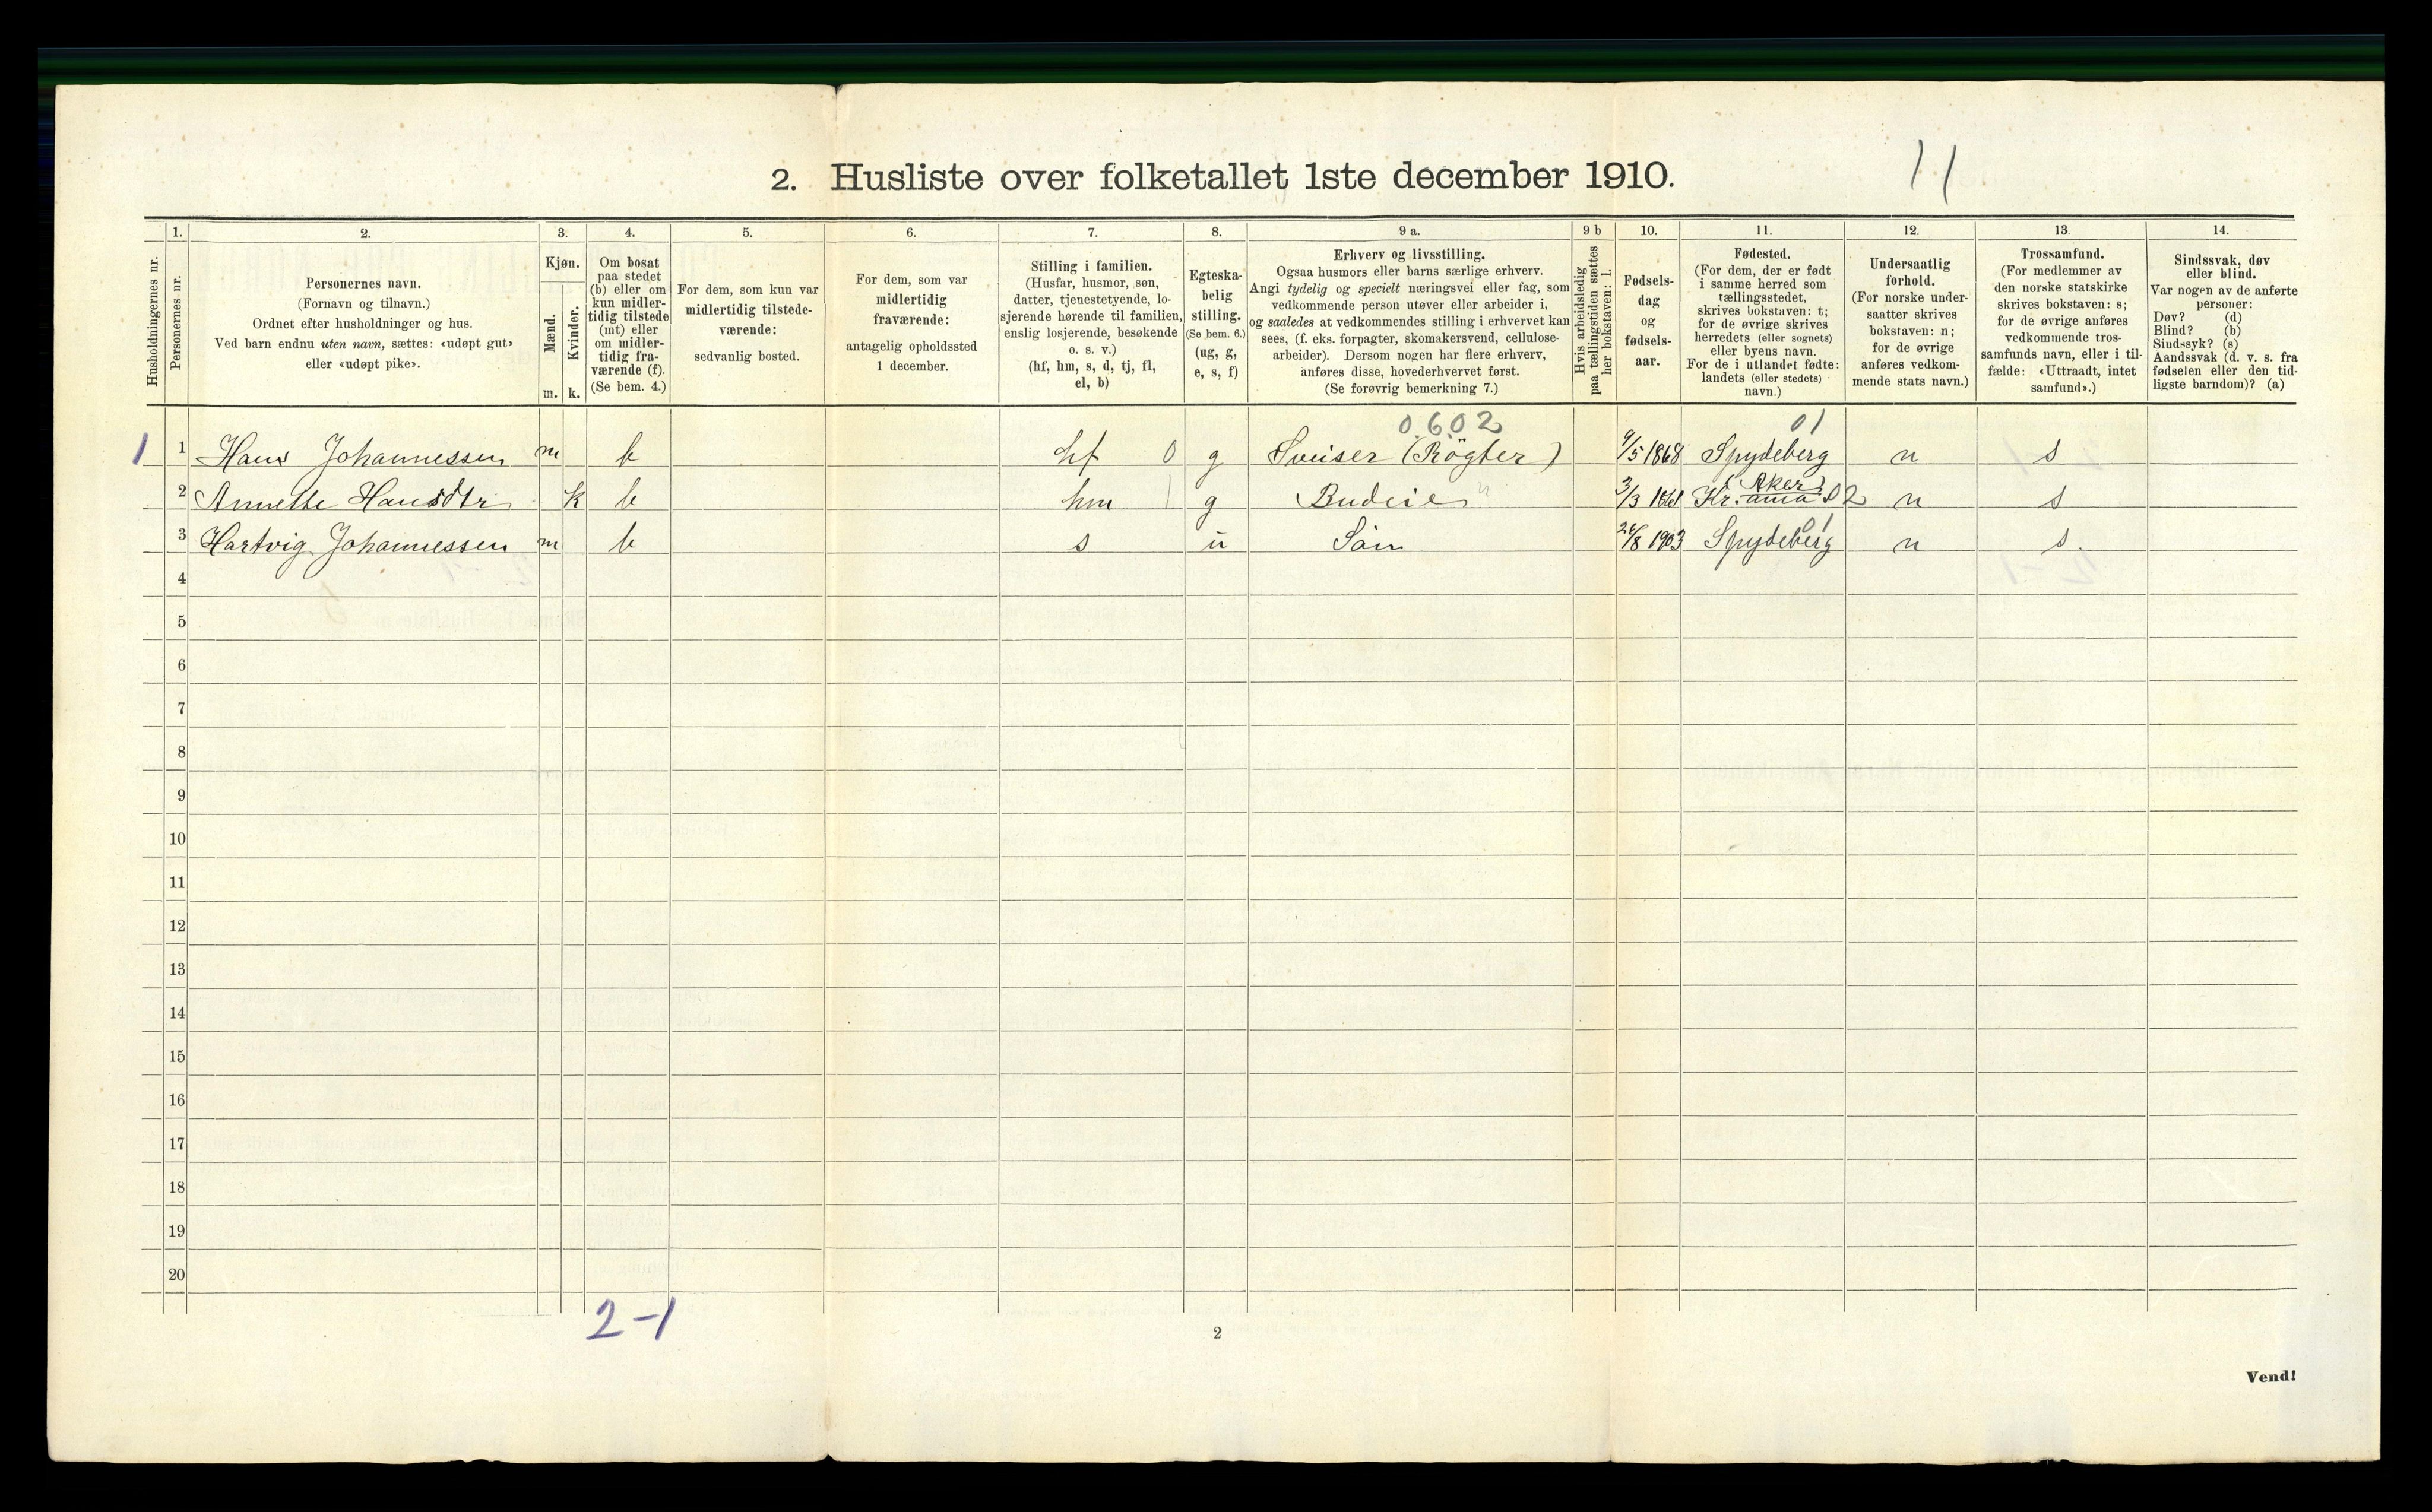 2. Husliste over folketallet 1ste december 1910.
11
Husholdningernes nr.
1.
Personernes nr.
2.
Personernes navn.
(Fornavn og tilnavn.)
Ordnet efter husholdninger og hus.
Ved barn endnu uten navn, sættes: «udøpt gut»
eller «udøpt pike».
3.
Kjøn.
Mænd.
Kvinder.
m.
k.
4.
Om bosat
paa stedet
(b) eller om
kun midler-
tidig tilstede
(mt) eller
om midler-
tidig fra-
værende (f).
(Se bem. 4.)
5.
For dem, som kun var
midlertidig tilstede-
værende:
sedvanlig bosted.
6.
For dem, som var
midlertidig
fraværende:
antagelig opholdssted
1 december.
7.
Stilling i familien.
(Husfar, husmor, søn,
datter, tjenestetyende, lo-
sjerende hørende til familien,
enslig losjerende, besøkende
o. s. v.)
(hf, hm, s, d, tj, fl,
el, b)
8.
Egteska-
belig
stilling.
(Se bem. 6.)
(ug, g,
e, s, f)
9 a.
Erhverv og livsstilling.
Ogsaa husmors eller barns særlige erhverv.
Angi tydelig og specielt næringsvei eller fag, som
vedkommende person utøver eller arbeider i,
og saaledes at vedkommendes stilling i erhvervet kan
sees, (f. eks. forpagter, skomakersvend, cellulose-
arbeider). Dersom nogen har flere erhverv,
anføres disse, hovederhvervet først.
(Se forøvrig bemerkning 7.)
9 b
Hvis arbeidsledig
paa tællingstiden sættes
her bokstaven: l.
10.
Fødsels-
dag
og
fødsels-
aar.
11.
Fødested.
(For dem, der er født
i samme herred som
tællingsstedet,
skrives bokstaven: t;
for de øvrige skrives
herredets (eller sognets)
eller byens navn.
For de i utlandet fødte:
landets (eller stedets)
navn.)
12.
Undersaatlig
forhold.
(For norske under-
saatter skrives
bokstaven: n;
for de øvrige
anføres vedkom-
mende stats navn.)
13.
Trossamfund.
(For medlemmer av
den norske statskirke
skrives bokstaven: s;
for de øvrige anføres
vedkommende tros-
samfunds navn, eller i til-
fælde: «Uttraadt, intet
samfund».)
14.
Sindssvak, døv
eller blind.
Var nogen av de anførte
personer:
Døv? (d)
Blind? (b)
Sindssyk? (s)
Aandssvak (d. v. s. fra
fødselen eller den tid-
ligste barndom)? (a)
0602 01
1 1 Hans Johannessen m b hf 0 g Sveiser (Rögter) 9/5 1868 Spydeberg n s
(Aker)
2 Annette Hansdtr k b hm 1 g Budeie " 3/3 Kr.ania 02 n s
01
3 Hartvig Johannessen m b s u Sön 24/8 1903 Spydeberg n s.
4
5
6
7
8
9
10
11
12
13
14
15
16
17
18
19
20
2-1
2
Vend!